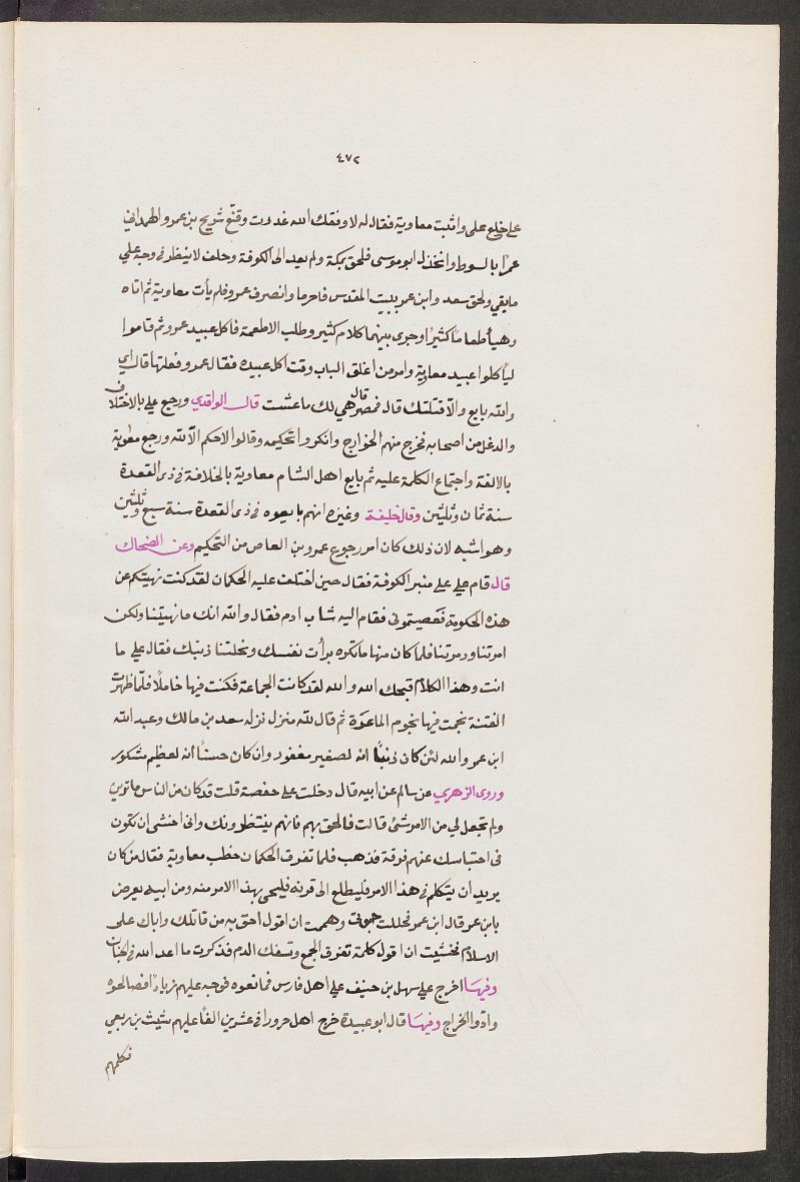 ٤٧٢
على خلع على واثبت معاوية فقال له لا وفقك الله غدرت وقنّع شريح بن عمرو الهمداني
عمرًا بالسوط وانخذل ابو موسى فلحق بمكة ولم يعد الى الكوفة وحلف لا ينظر في وجه علي
ما بقي ولحق سعد وابن عمر ببيت المقدس فاحرما وانصرف عمرو فلم يأت معاوية ثم اتاه
وهيأ طعامًا كثيرًا وجرى بينهما كلام كثير وطلب الاطعمة فاكل عبيد عمرو ثم قاموا
ليأكلوا عبيد معاوية وامر من اغلق الباب وقت اكل عبيده فقال عمرو فعلتها قال اي
والله بايع والّا قتلتك قال فمصر قال هي لك ما عشت قال الواقدي ورجع علي بالاختلاف
والدغل من اصحابه فخرج منهم الخوارج وانكروا تحكيمه وقالوا لا حكم الّا لله ورجع معوية
بالالفة واجتماع الكلمة عليه ثم بايع اهل الشام معاوية بالخلافة في ذى القعدة
سنة ثمان وثلثين وقال خليفة وغيره انهم بايعوه في ذى القعدة سنة سبع وثلثين
وهو اشبه لان ذلك كان امر رجوع عمرو بن العاص من التحكيم وعن الضحاك
قال قام علي على منبر الكوفة فقال حين اختلف عليه الحكمان لقد كنت نهيتكم عن
هذه الحكومة فعصيتموني فقام اليه شاب ادم فقال والله انك ما نهيتنا ولكن
امرتنا ودمرتنا فلما كان منها ما تكره برأت نفسك ونحلتنا ذنبك فقال علي ما
انت وهذا الكلام قبحك الله والله لقد كانت الجماعة فكنت فيها خاملًا فلمّا ظهرت
الفتنة نجمت فيها نجوم الماعزة ثم قال لله منزل نزله سعد بن مالك وعبد الله
ابن عمر والله لئن كان ذنبًا انه لصغير مغفور وان كان حسنًا انه لعظيم مشكور
وروى الزهري عن سالم عن ابيه قال دخلت على حفصة قلت قد كان من الناس ما ترين
ولم يجعل لي من الامر شئ قالت فالحق بهم فانهم ينتظرونك وانى اخشى ان تكون
فى احتباسك عنهم فرقة فذهب فلما تفرق الحكمان خطب معاوية فقال من كان
يريد ان يتكلم في هذا الامر فليطلع الى قرنه فلنحن بهذا الامر منه ومن ابيه يعرض
بابن عمر قال ابن عمر فحللت حبوتى وهممت ان اقول احق به من قاتلك واباك على
الاسلام فخشيت ان اقول كلمة تفرق الجمع وتسفك الدم فذكرت ما اعد الله في الجنان
وفيها اخرج علي سهل بن حنيف على اهل فارس فمانعوه فوجه عليهم زيادًا فصالحوه
وادّوا الخراج وفيها قال ابو عبيدة خرج اهل حرورا في عشرين الفًا عليهم شبث بن ربعي
فكلمهم